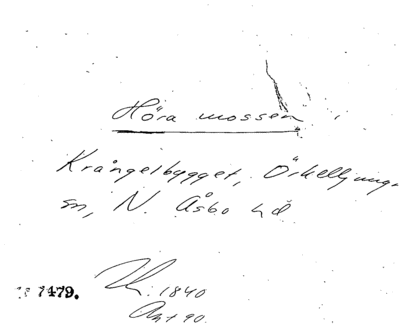 Höra mossen
Krångelbygget, Örkelljunga
sn, N. Åsbo hd
1479.
1840
Ant 90.